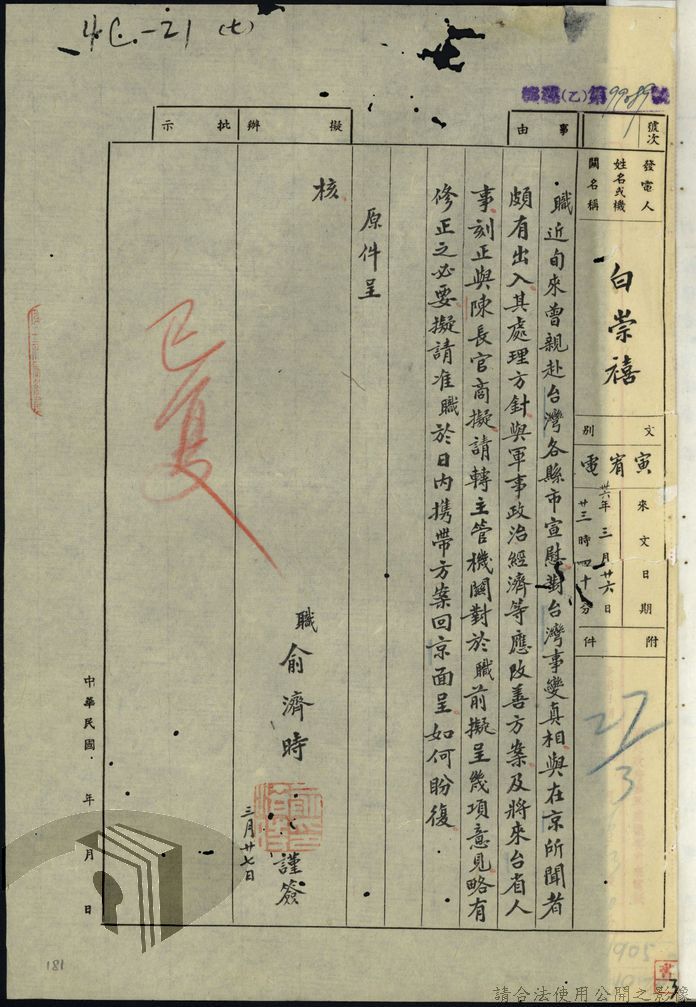 4C.-21 (七)
(乙)第99089號
號次
1
發電人
姓名或機
關名稱
白崇禧
文別
寅宥電
來文日期
卅六年三月廿六日
廿三時四十分
附件
27/3
事由
職近旬來曾親赴台灣各縣市宣慰對台灣事變真相與在京所聞者
頗有出入其處理方針與軍事政治經濟等應改善方案及將來台省人
事刻正與陳長官商擬請轉主管機關對於職前擬呈幾項意見略有
修正之必要擬請准職於日內携帶方案回京面呈如何盼復
擬辦
批示
原件呈
核
職俞濟時
謹簽
三月廿七日
已复
中華民國 年 月 日
181
1905
請合法使用公開之影像